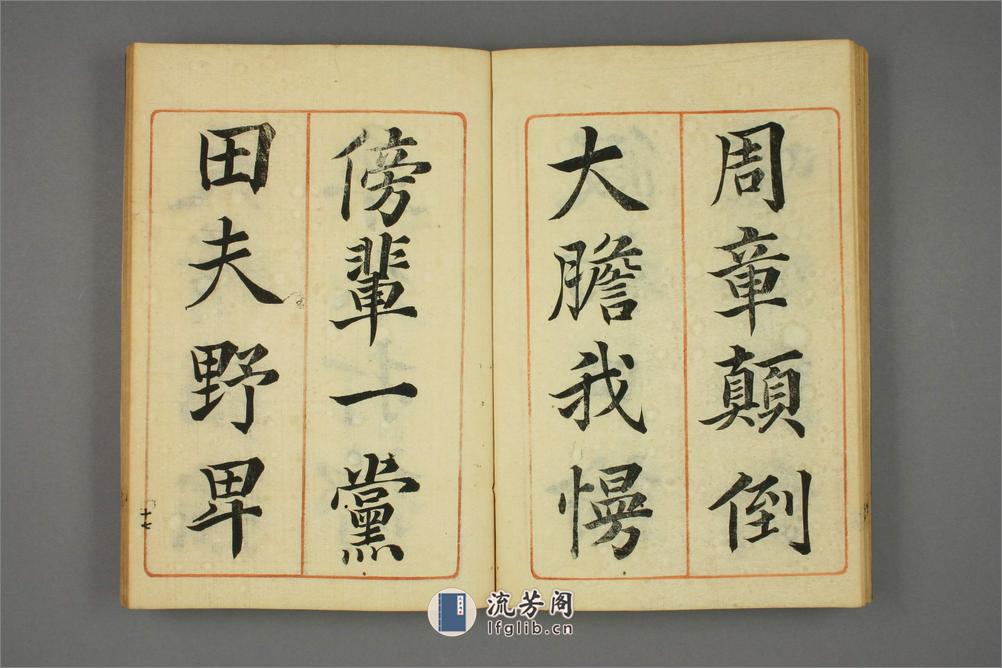 周章顛倒
大膽我慢
傍輩一黨
田夫野卑
流芳阁
lfglib.cn